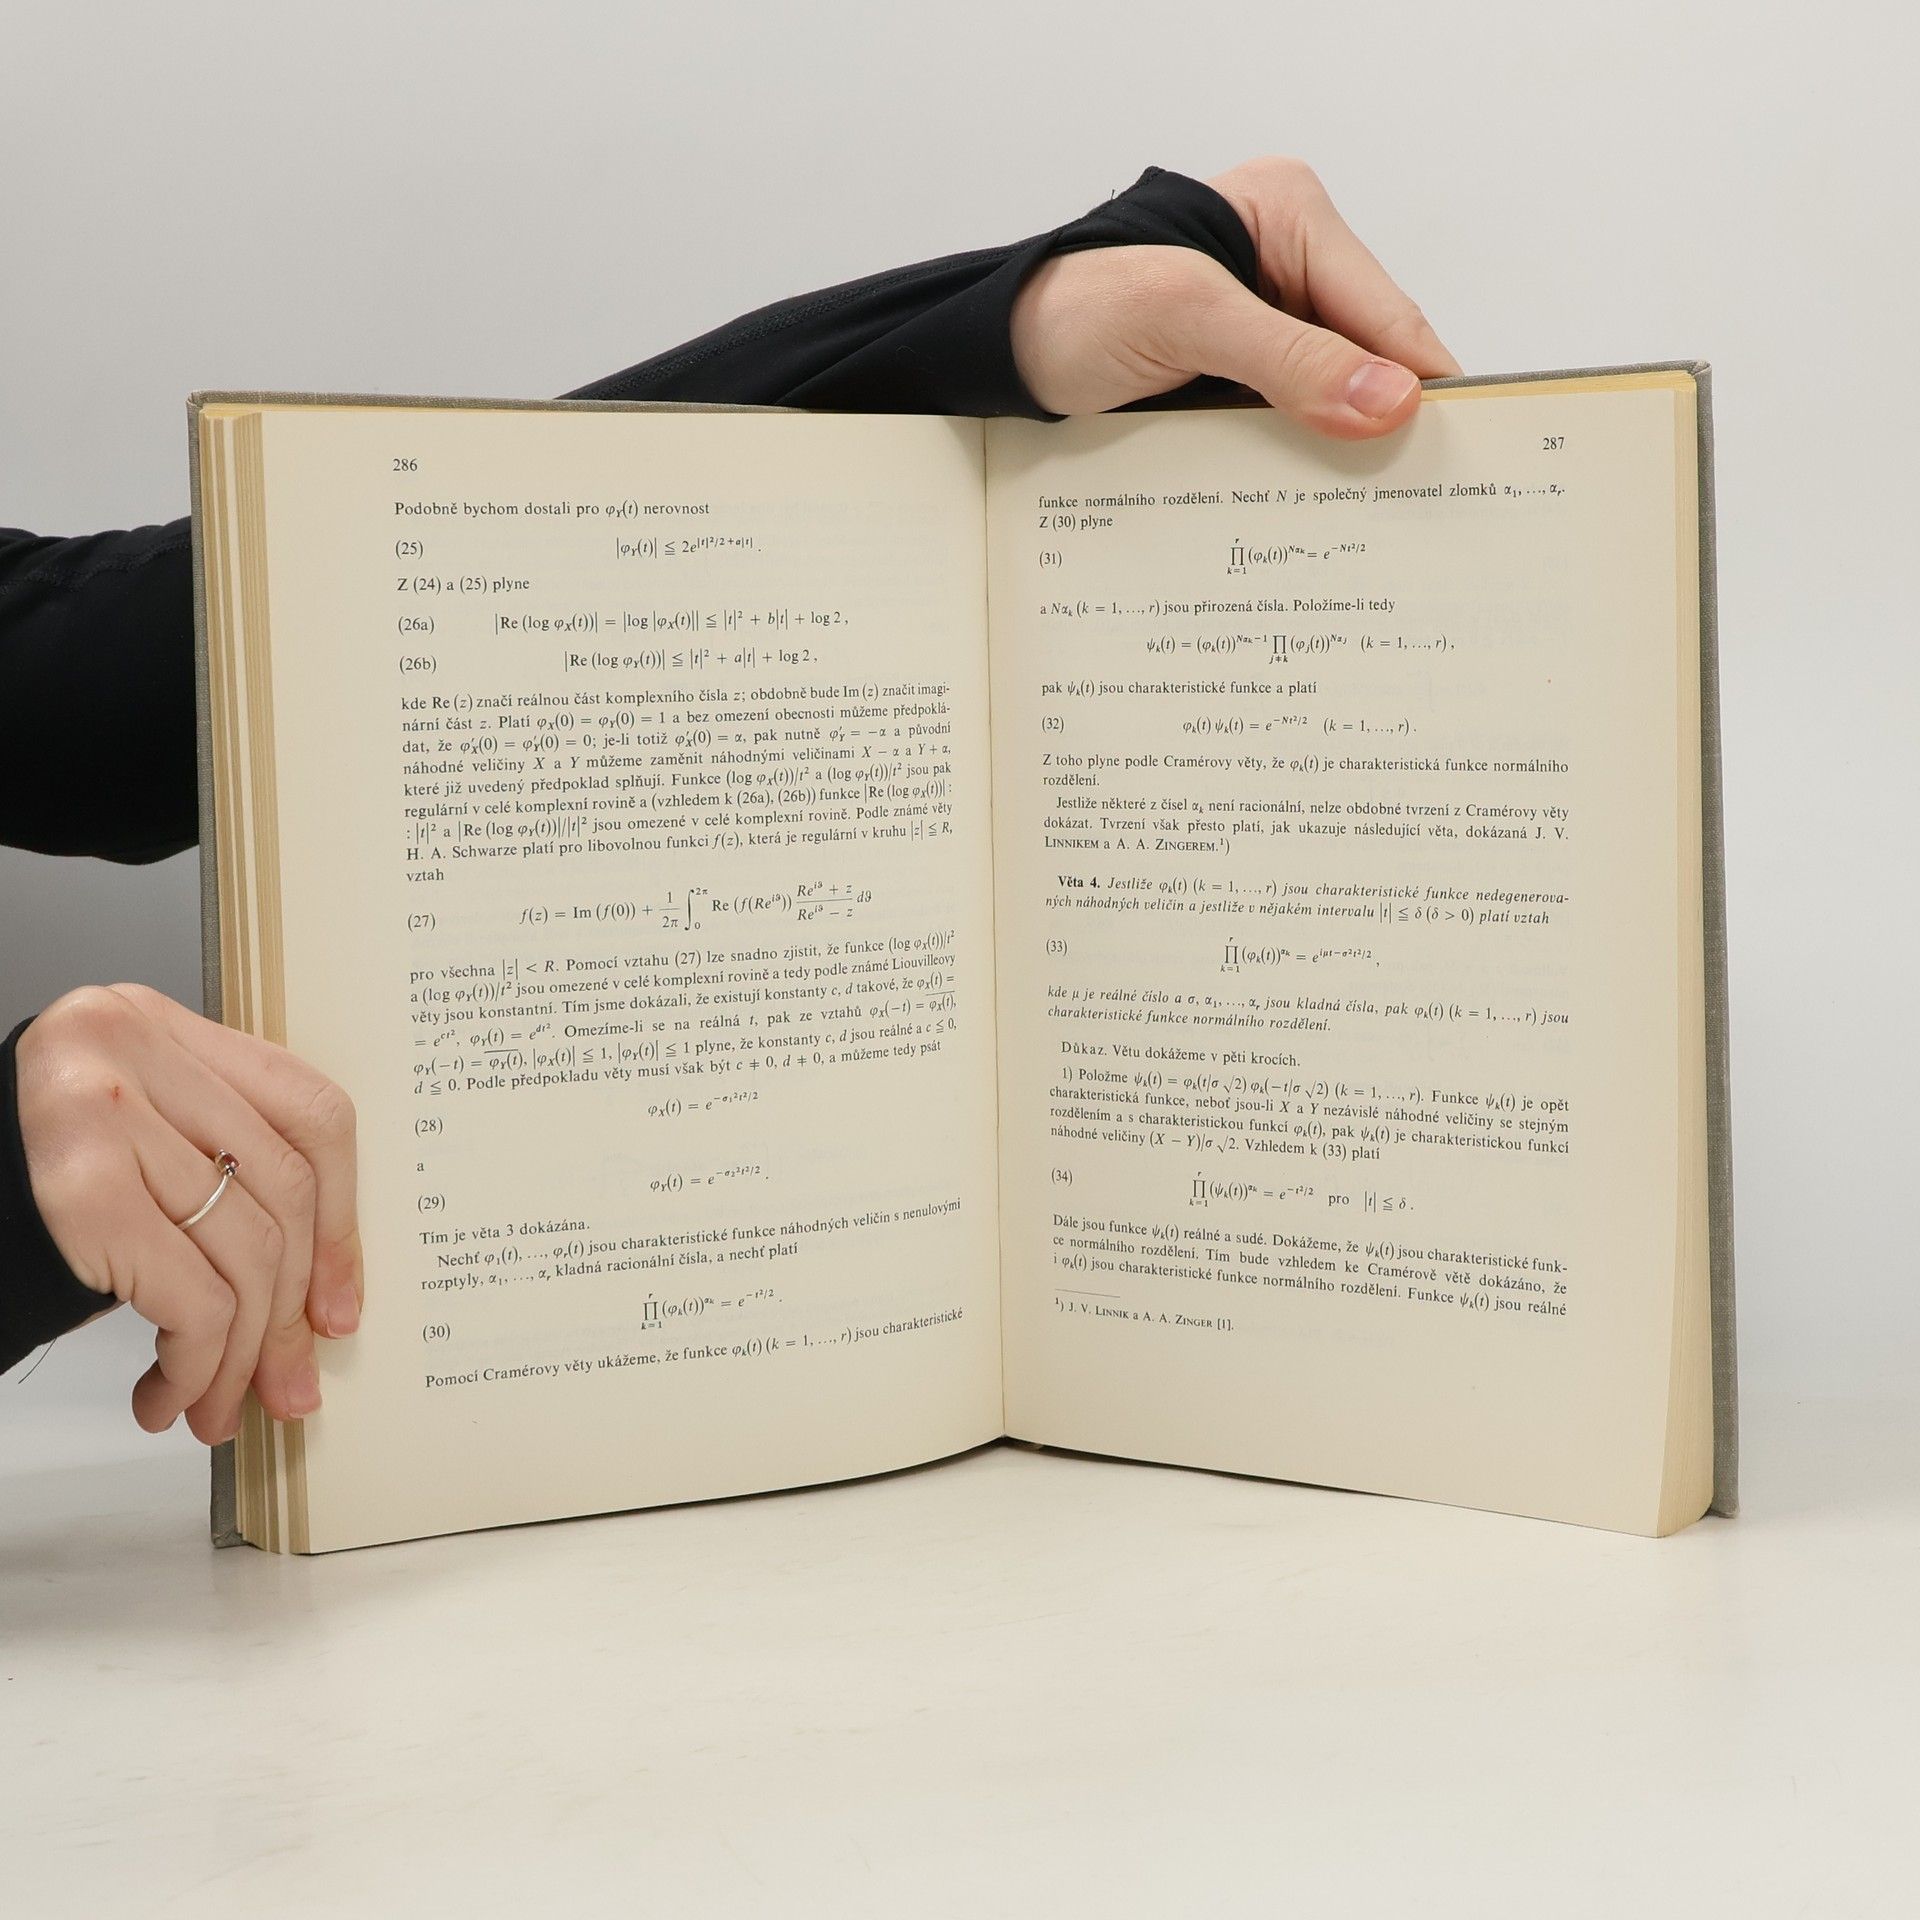 286
Podobně bychom dostali pro φ_Y(t) nerovnost
(25) |φ_Y(t)| ≦ 2e^{|t|²/2+a|t|} .
Z (24) a (25) plyne
(26a) |Re (log φ_X(t))| = |log |φ_X(t)|| ≦ |t|² + b|t| + log 2 ,
(26b) |Re (log φ_Y(t))| ≦ |t|² + a|t| + log 2 ,
kde Re (z) značí reálnou část komplexního čísla z; obdobně bude Im (z) značit imagi-
nární část z. Platí φ_X(0) = φ_Y(0) = 1 a bez omezení obecnosti můžeme předpoklá-
dat, že φ′_X(0) = φ′_Y(0) = 0; je-li totiž φ′_X(0) = α, pak nutně φ′_Y = −α a původní
náhodné veličiny X a Y můžeme zaměnit náhodnými veličinami X − α a Y + α,
které již uvedený předpoklad splňují. Funkce (log φ_X(t))/t² a (log φ_Y(t))/t² jsou pak
regulární v celé komplexní rovině a (vzhledem k (26a), (26b)) funkce |Re (log φ_X(t))| :
: |t|² a |Re (log φ_Y(t))|/|t|² jsou omezené v celé komplexní rovině. Podle známé věty
H. A. Schwarze platí pro libovolnou funkci f(z), která je regulární v kruhu |z| ≦ R,
vztah
(27) f(z) = Im (f(0)) + 1/2π ∫_0^{2π} Re (f(Re^{iϑ})) (Re^{iϑ} + z)/(Re^{iϑ} − z) dϑ
pro všechna |z| < R. Pomocí vztahu (27) lze snadno zjistit, že funkce (log φ_X(t))/t²
a (log φ_Y(t))/t² jsou omezené v celé komplexní rovině a tedy podle známé Liouvilleovy
věty jsou konstantní. Tím jsme dokázali, že existují konstanty c, d takové, že φ_X(t) =
= e^{ct²}, φ_Y(t) = e^{dt²}. Omezíme-li se na reálná t, pak ze vztahů φ_X(−t) = \overline{φ_X(t)},
φ_Y(−t) = \overline{φ_Y(t)}, |φ_X(t)| ≦ 1, |φ_Y(t)| ≦ 1 plyne, že konstanty c, d jsou reálné a c ≦ 0,
d ≦ 0. Podle předpokladu věty musí však být c ≠ 0, d ≠ 0, a můžeme tedy psát
(28) φ_X(t) = e^{−σ₁²t²/2}
a
(29) φ_Y(t) = e^{−σ₂²t²/2} .
Tím je věta 3 dokázána.
Nechť φ₁(t), ..., φ_r(t) jsou charakteristické funkce náhodných veličin s nenulovými
rozptyly, α₁, ..., α_r kladná racionální čísla, a nechť platí
(30) ∏_{k=1}^{r} (φ_k(t))^{α_k} = e^{−t²/2} .
Pomocí Cramérovy věty ukážeme, že funkce φ_k(t) (k = 1, ..., r) jsou charakteristické
287
funkce normálního rozdělení. Nechť N je společný jmenovatel zlomků α₁, ..., α_r.
Z (30) plyne
(31) ∏_{k=1}^{r} (φ_k(t))^{Nα_k} = e^{−Nt²/2}
a Nα_k (k = 1, ..., r) jsou přirozená čísla. Položíme-li tedy
ψ_k(t) = (φ_k(t))^{Nα_k−1} ∏_{j≠k} (φ_j(t))^{Nα_j} (k = 1, ..., r) ,
pak ψ_k(t) jsou charakteristické funkce a platí
(32) φ_k(t) ψ_k(t) = e^{−Nt²/2} (k = 1, ..., r) .
Z toho plyne podle Cramérovy věty, že φ_k(t) je charakteristická funkce normálního
rozdělení.
Jestliže některé z čísel α_k není racionální, nelze obdobné tvrzení z Cramérovy věty
dokázat. Tvrzení však přesto platí, jak ukazuje následující věta, dokázaná J. V.
LINNIKEM a A. A. ZINGEREM.¹)
Věta 4. Jestliže φ_k(t) (k = 1, ..., r) jsou charakteristické funkce nedegenerova-
ných náhodných veličin a jestliže v nějakém intervalu |t| ≦ δ (δ > 0) platí vztah
(33) ∏_{k=1}^{r} (φ_k(t))^{α_k} = e^{iμt−σ²t²/2} ,
kde μ je reálné číslo a σ, α₁, ..., α_r jsou kladná čísla, pak φ_k(t) (k = 1, ..., r) jsou
charakteristické funkce normálního rozdělení.
Důkaz. Větu dokážeme v pěti krocích.
1) Položme ψ_k(t) = φ_k(t/σ √2) φ_k(−t/σ √2) (k = 1, ..., r). Funkce ψ_k(t) je opět
charakteristická funkce, neboť jsou-li X a Y nezávislé náhodné veličiny se stejným
rozdělením a s charakteristickou funkcí φ_k(t), pak ψ_k(t) je charakteristickou funkcí
náhodné veličiny (X − Y)/σ √2. Vzhledem k (33) platí
(34) ∏_{k=1}^{r} (ψ_k(t))^{α_k} = e^{−t²/2} pro |t| ≦ δ .
Dále jsou funkce ψ_k(t) reálné a sudé. Dokážeme, že ψ_k(t) jsou charakteristické funk-
ce normálního rozdělení. Tím bude vzhledem ke Cramérově větě dokázáno, že
i φ_k(t) jsou charakteristické funkce normálního rozdělení. Funkce ψ_k(t) jsou reálné
¹) J. V. LINNIK a A. A. ZINGER [1].